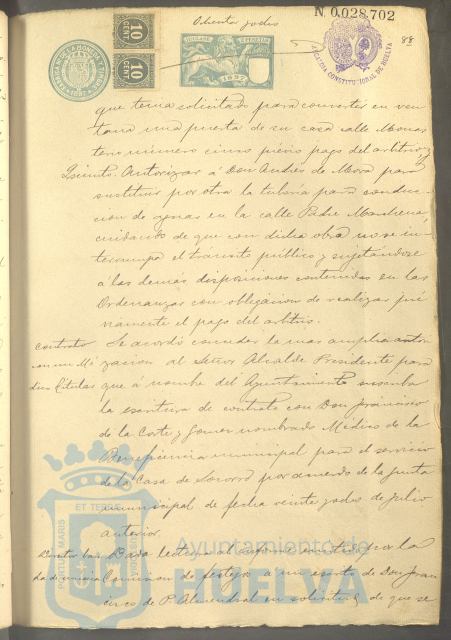 Ochenta y ocho
N. 0.028.702
88
10 CENT
10 CENT
1897
ALCALDIA CONSTITUCIONAL DE HUELVA
que tenia solicitado para convertir en ven
tana una puerta de su casa calle Monas
terio número cinco previo pago del arbitrio.
Asiento. Autorizar á Don Andres de Mora para
sustituir por otra la tubería para conduc-
cion de aguas en la calle Padre Marchena,
cuidando de que con dicha obra no se in-
terrumpa el tránsito público y sujetándose
á las demás disposiciones contenidas en las
Ordenanzas con obligacion de realizar pré
viamente el pago del arbitrio.
contrato Se acordó conceder la mas amplia autori
con un Mé zacion al Señor Alcalde Presidente para
dico Titular que á nombre del Ayuntamiento suscriba
la escritura de contrato con Don Francisco
de la Corte y Gomez nombrado Médico de la
Beneficencia municipal para el servicio
de la Casa de Socorro por acuerdo de la Junta
municipal de fecha veinte y dos de Julio
anterior.
Dada lectura al informe emitido por la
Comision de festejos en escrito de Don Fran
cisco de P. Almendral en solicitud de que se
PORTUS MARIS ET TERRÆ CUSTODIA
Ayuntamiento de
HUELVA